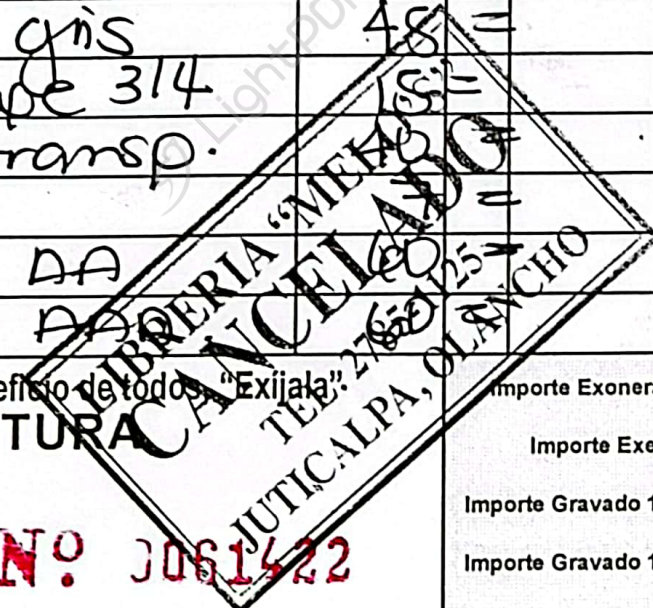 gris 45 =
pe 3/4 15 =
transp. 40 =
7 =
AA 60 =
AAA 60 =
LIBRERIA "MELO"
CANCELADO
TEL: 2785-1125
JUTICALPA, OLANCHO
eficio de todos, "Exijala"
TURA
Nº 0061422
Importe Exoner
Importe Exe
Importe Gravado 1
Importe Gravado 1
LightPD